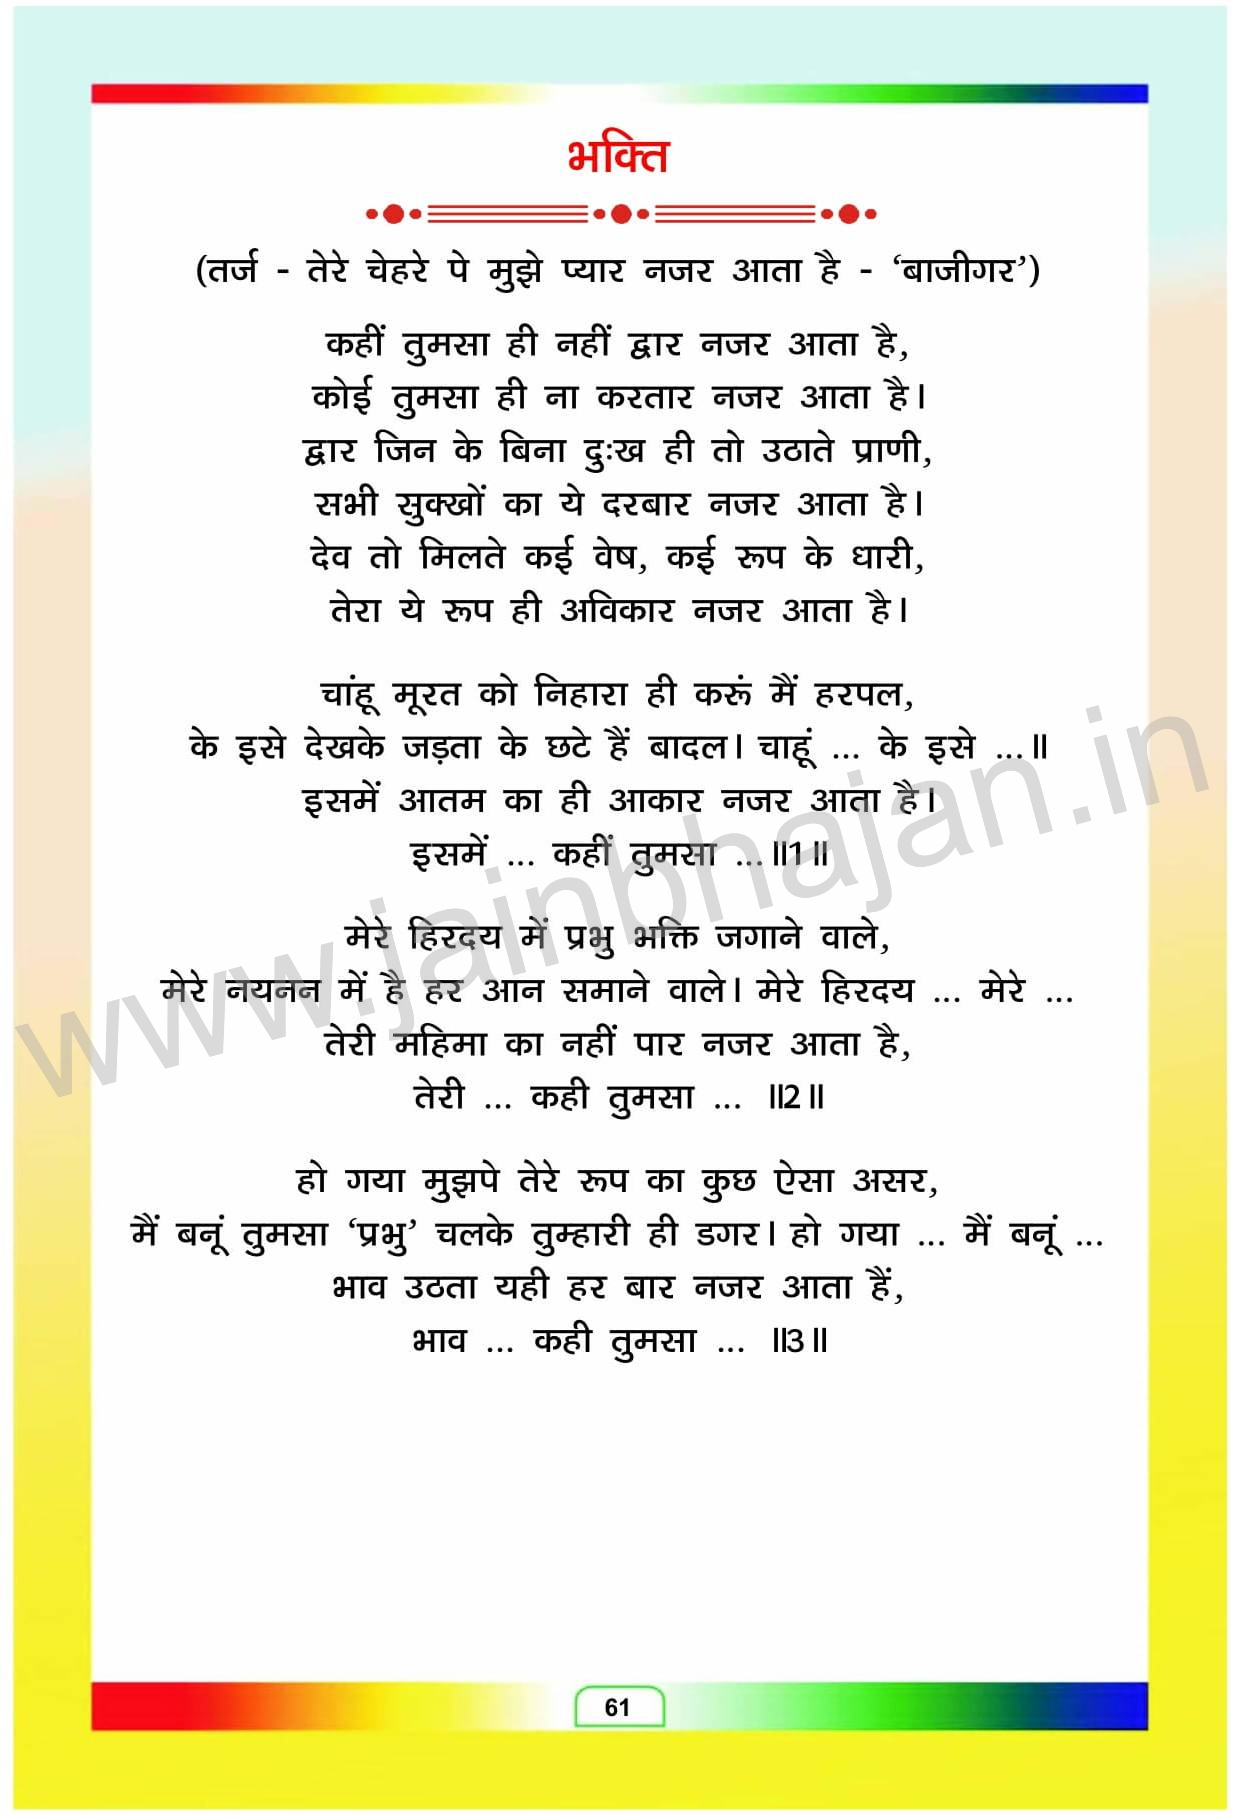 भक्ति
(तर्ज - तेरे चेहरे पे मुझे प्यार नजर आता है - ‘बाजीगर’)
कहीं तुमसा ही नहीं द्वार नजर आता है,
कोई तुमसा ही ना करतार नजर आता है।
द्वार जिन के बिना दुःख ही तो उठाते प्राणी,
सभी सुक्खों का ये दरबार नजर आता है।
देव तो मिलते कई वेष, कई रूप के धारी,
तेरा ये रूप ही अविकार नजर आता है।
चांहू मूरत को निहारा ही करूं मैं हरपल,
के इसे देखके जड़ता के छटे हैं बादल। चाहूं ... के इसे ...॥
इसमें आतम का ही आकार नजर आता है।
इसमें ... कहीं तुमसा ...॥1॥
मेरे हिरदय में प्रभु भक्ति जगाने वाले,
मेरे नयनन में है हर आन समाने वाले। मेरे हिरदय ... मेरे ...
तेरी महिमा का नहीं पार नजर आता है,
तेरी ... कही तुमसा ... ॥2॥
हो गया मुझपे तेरे रूप का कुछ ऐसा असर,
मैं बनूं तुमसा ‘प्रभु’ चलके तुम्हारी ही डगर। हो गया ... मैं बनूं ...
भाव उठता यही हर बार नजर आता हैं,
भाव ... कही तुमसा ... ॥3॥
www.jainbhajan.in
61